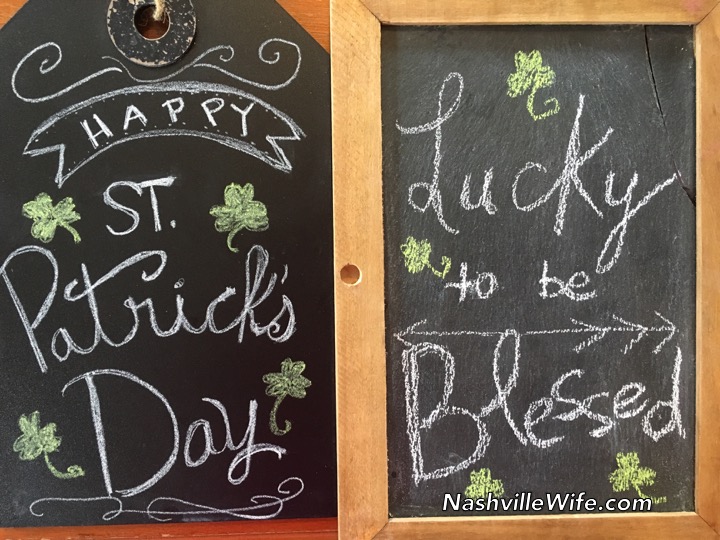 HAPPY
ST.
Patrick's
Day
Lucky
to be
Blessed
NashvilleWife.com